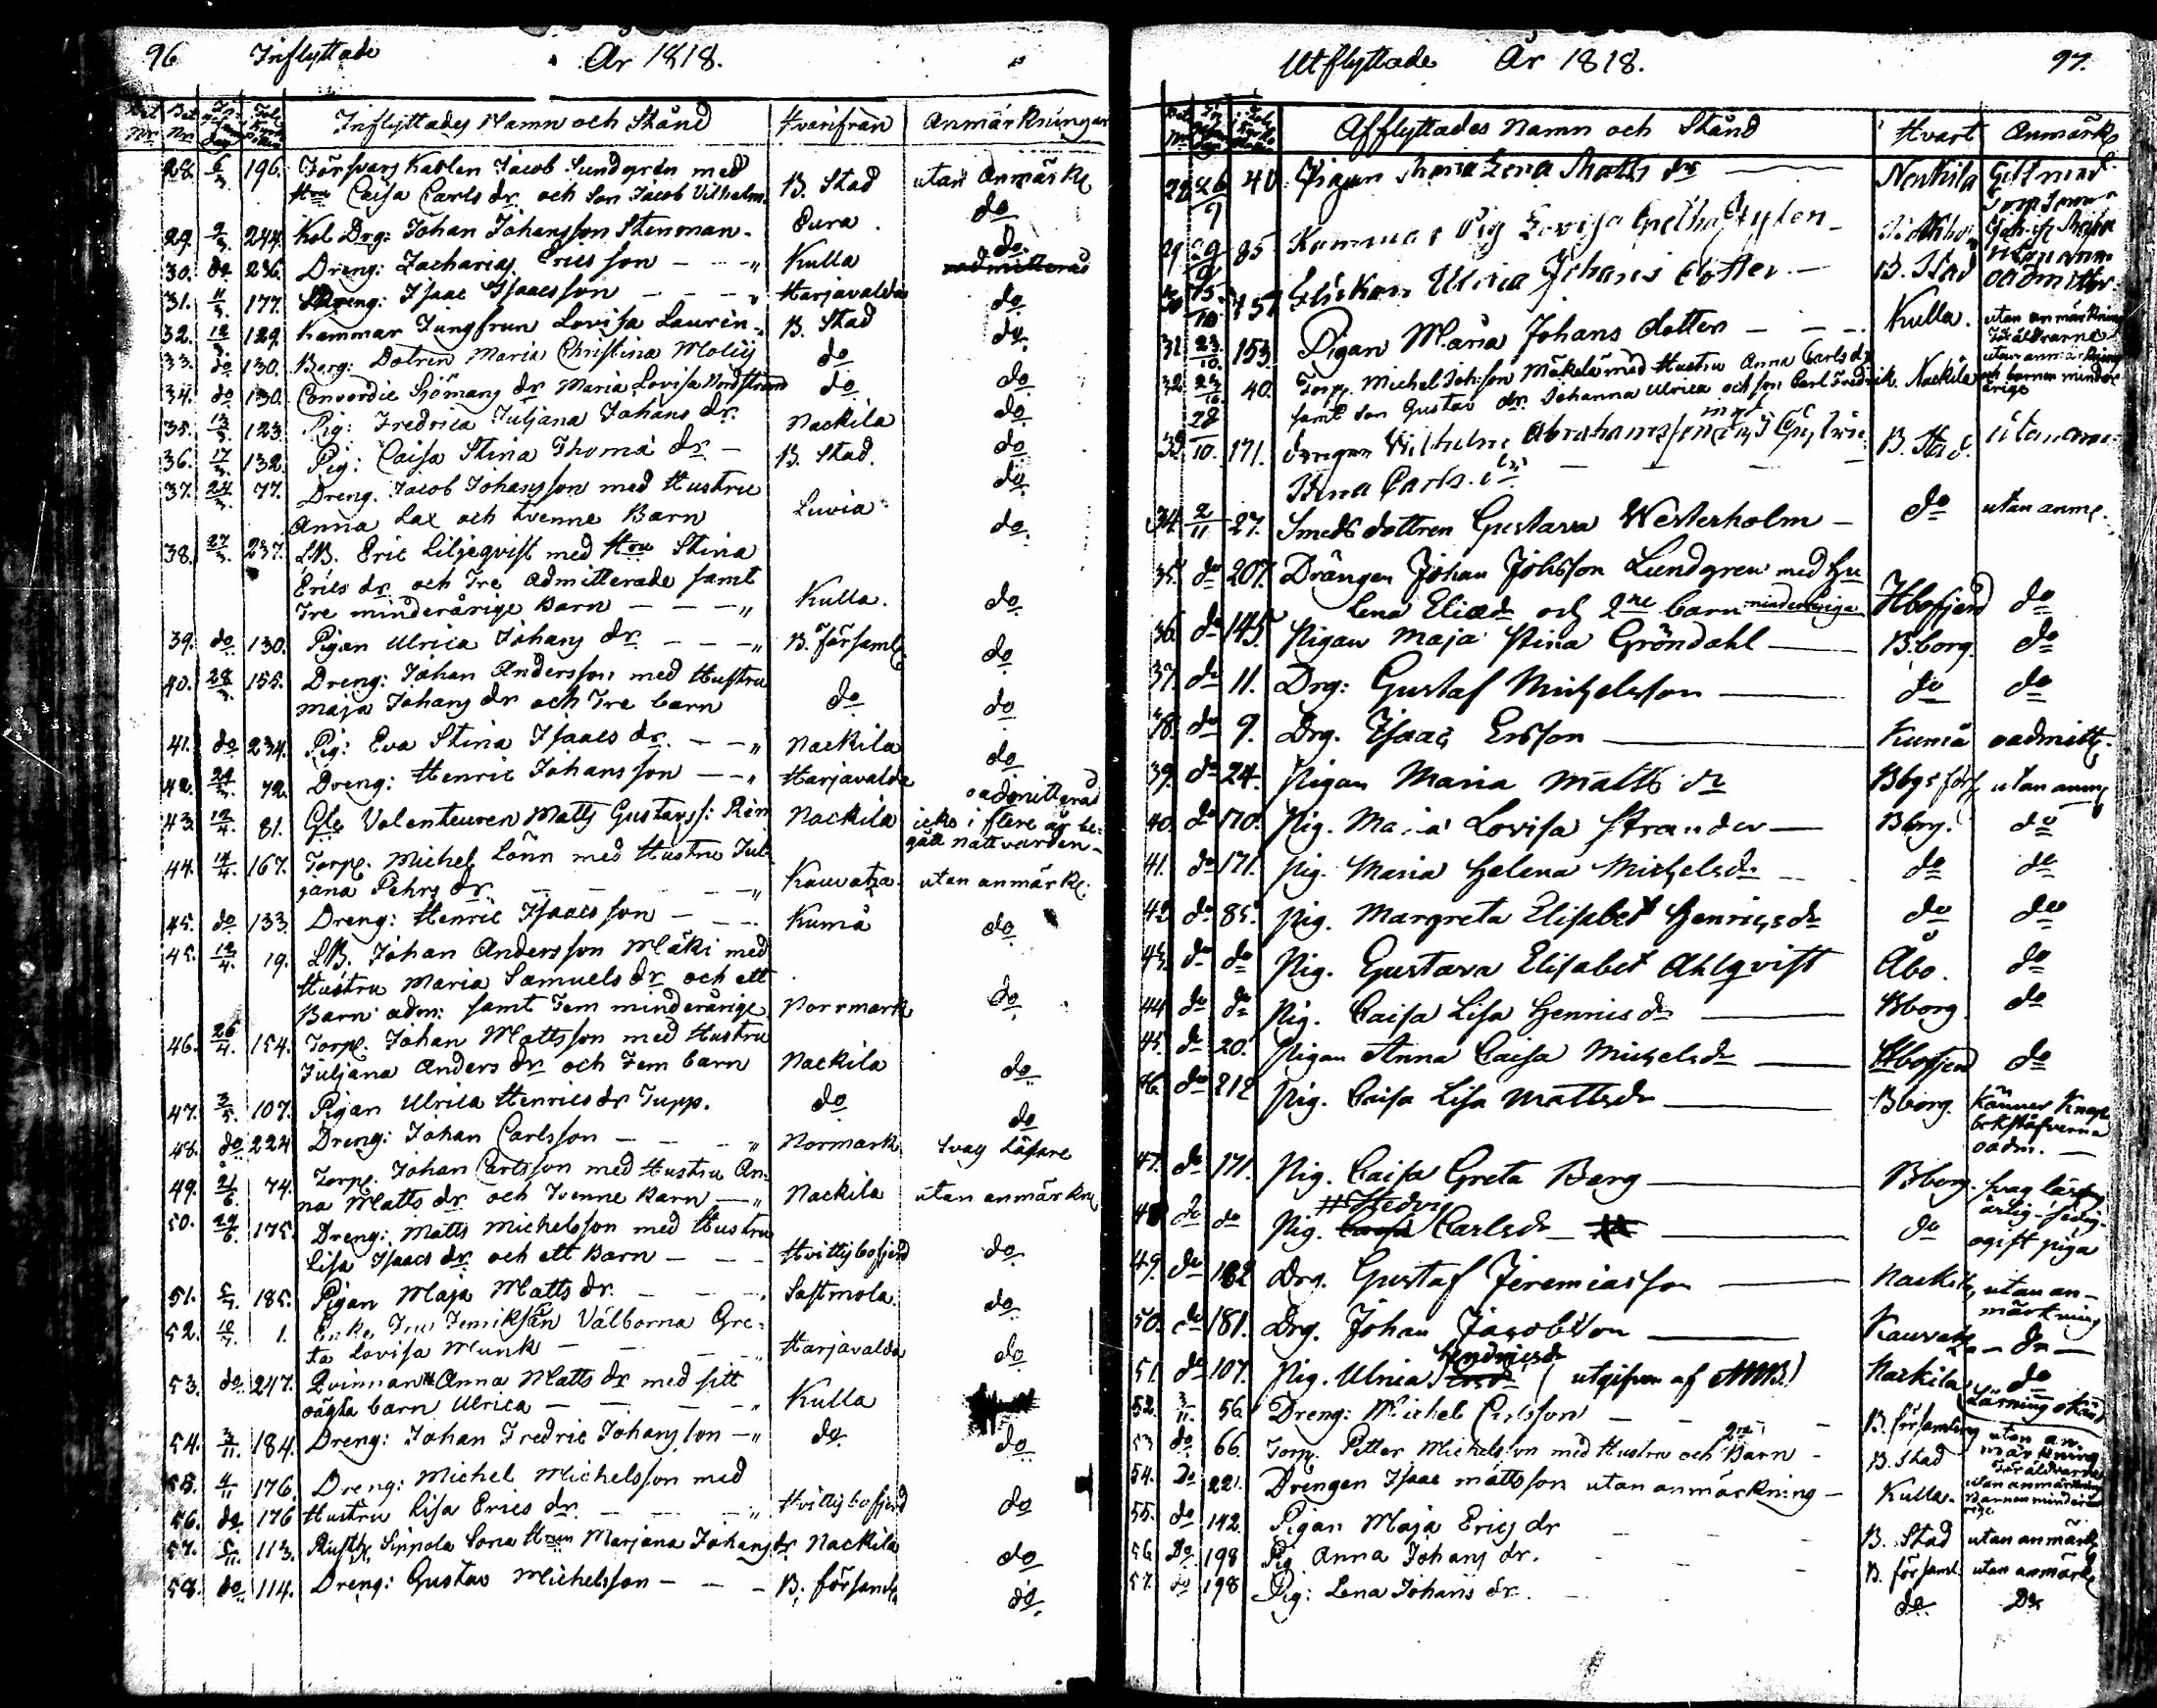 96 Inflyttade År 1818.
Bet Nr. Bet Nr. Inflyttades Namn och Stånd Hvarifrån Anmärkningar
28. 6/3 196. Försvars Karlen Jacob Sundgren med
Hru Caisa Carls dr och Son Jacob Vilhelm. B. Stad utan Anmärkn
29. 9/3. 244. Kol Drg: Johan Johansson Stenman - Eura do
30. do 236. Dreng: Zacharias Ericsson - - „ Kulla do
31. 11/3. 177. Dreng: Isaac Isaacsson - - - „ Harjavalda do
32. 12/3. 129. Kammar Jungfrun Lovisa Laurén „ B. Stad do
33. do 130. Borg: Dotren Maria Christina Molijs do
34. do 130. Concordie Sjömans dr Maria Lovisa Nordstrand do do
35. 13/3. 123. Pig: Fredrica Juljana Johans dr. Nackila do
36. 17/3. 132. Pig: Caisa Stina Thoma dr - B. Stad. do
37. 24/3. 77. Dreng. Jacob Johansson med Hustru do
Anna Lax och tvenne Barn Luvia do
38. 27/3. 237. LB. Eric Liljeqvist med Hru Stina
Erics dr och Tre admitterade samt
Tre minderårige Barn - - - „ Kulla. do
39. do 130. Pigan Ulrica Johans dr - - - „ B. församl do
40. 28/3. 155. Dreng: Johan Andersson med Hustru
Maja Johans dr och Tre barn do do
41. do 234. Pig: Eva Stina Isaacs dr - - „ Nackila do
42. 29/3. 72. Dreng: Henric Johansson - - „ Harjavalda oadmitterad
43. 12/4. 81. Gle Volenteuren Matts Gustavss: Rén Nackila icke i flere år be-
gått nattvarden -
44. 14/4. 167. Torp. Michel Lönn med Hustru Jul
jana Pehrs dr. - - - „ Kauvatza utan anmärkn
45. do 133. Dreng: Henric Isaacsson - - Kumå do
45. 19/4. 19. LB. Johan Andersson Mäki med
Hustru Maria Samuels dr och ett
Barn adm: samt Fem minderårige Norrmark do
46. 26/4. 154. Torp. Johan Mattsson med Hustru
Juljana Anders dr och Fem barn Nackila do
47. 3/5. 107. Pigan Ulrica Henrics dr Tupp. do do
48. do 224 Dreng: Johan Carlsson - - - „ Normark Svag Läsare
49. 21/6. 74. Torp. Johan Carlsson med Hustru An-
na Matts dr och Tvenne Barn - „ Nackila utan anmärkn
50. 29/6. 175. Dreng: Matts Michelsson med Hustru
Lisa Isaacs dr och ett Barn - - - Hvittisbofjerd do
51. 5/7. 185. Pigan Maja Matts dr. - - - Sastmola. do
52. 10/7. 1. Enke Fru Välborna Gre-
ta Lovisa Munk - - - „ Harjavalda do
53. do. 247. Qvinnan Anna Matts dr med sitt
oägta barn Ulrica - - - „ Kulla
54. 3/11. 184. Dreng: Johan Fredric Johansson - „ do do
55. 4/11 176. Dreng: Michel Michelsson med
56. do. 176 Hustru Lisa Erics dr. - - - „ Hvittisbofjerd do
57. 5/11. 113. Rusth. Sippola Sona Hrun Marjana Johans dr Nackila do
58. do 114. Dreng: Gustav Michelsson - - - B. församl do.
Utflyttade År 1818. 97.
Afflyttades Namn och Stånd Hvart Anmärkn
28 26/9 40. Pigan Maria Lena Matts dr Nackila
29 29/9 85 Kammar Pig Lovisa
30 15/10 Flickan Ulrica Johans dotter - B. Stad oadmitter
31 23/10. 153 Pigan Maria Johans dotter - - - Kulla. utan anmärkning
32. 23/10 40. Torp. Michel Johsson Mäkelä med Hustru Anna Carls dr
samt son Gustav dr. Johanna Ulrica och son Carl Fredrik. Nackila
Föräldrarne
utan anmärkning
och barnen minder
årige
33. 28/10. 171. drengen Vilhelm Abrahamsson med
Stina Carls dr - - - B. Stad.
34. 2/11 27. Smeds dottren Gustava Westerholm - do utan anmr.
35. do 207. Drängen Johan Johsson Lundgren med Hu
Lena Eliædr och 2ne barn minderåriga Hbofjerd do
36. do 145. Pigan Maja Stina Gröndahl - B.borg. do
37. do 11. Drg: Gustaf Michelsson - do do
38. do 9. Drg. Isaac Ersson - Kumå oadmitt.
39. do 24. Pigan Maria Matts dr Bbgs förs utan anm
40. do 170. Pig. Maria Lovisa Strander - Bbrg. do
41. do 171. Pig. Maria Helena Michelsdr - - do do
42. do 85. Pig. Margreta Elisabet Henricsdr do do
43. do do Pig. Gustava Elisabet Ahlqvist Åbo. do
44 do do Pig. Caisa Lisa Henrics dr - Bborg. do
45. do 20. Pigan Anna Caisa Michelsdr - Hbofjerd do
46. do 212 Pig. Caisa Lisa Mattsdr - Bborg. känner knapt
bokstäfverna
oadm. -
47. do 171. Pig. Caisa Greta Berg - Bborg. svag läsning
ärlig - sedig -
48 do do Pig. Hedvig Carlsdr - do ogift piga
49. do 182 Drg. Gustaf Jeremiasson - Nackila utan an-
märkning
50. do 181. Drg. Johan Jacobsson - Kauvatza - do -
51. do 107. Pig. Ulrica Hendricsdr (utgifven af AMB.) Nackila do
52. 3/11. 56. Dreng: Michel Carlsson - - - B. församling Lärning okänd
53 do 66. Torp. Petter Michelsson med Hustru och 2ne Barn - B. Stad utan an-
märkning
54. Do 221. Drengen Isaac Mattsson utan anmärkning - Kulla.
Föräldrarne
utan anmärkning
Barnen minderå
rige
55. do 142. Pigan Maja Erics dr - - - B. Stad utan anmärkn
56. Do. 198 Pig Anna Johans dr. - - B. församl. utan anmärkn
57. do 198 Pig: Lena Johans dr. - do Do